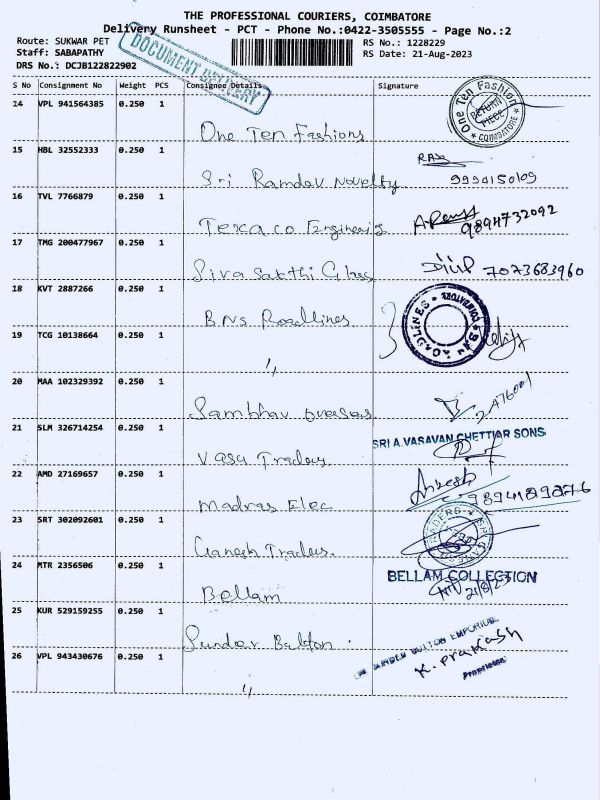 THE PROFESSIONAL COURIERS, COIMBATORE
Delivery Runsheet - PCT - Phone No.:0422-3505555 - Page No.:2
Route: SUKWAR PET
RS No.: 1228229
Staff: SABAPATHY
RS Date: 21-Aug-2023
DRS No.: DCJB122822902
DOCUMENT DELIVERY
S No Consignment No Weight PCS Consignee Details Signature
14 VPL 941564385 0.250 1
One Ten Fashions
One Ten Fashion RETURN PIECE COIMBATORE
15 HBL 32552333 0.250 1
Sri Ramdev Novelty
9994150109
16 TVL 7766879 0.250 1
Texaco Engineering
9894732092
17 TMG 200477967 0.250 1
Siva Sakthi Glass
7073683960
18 KVT 2887266 0.250 1
BNS Roadlines
19 TCG 10138664 0.250 1
〃
20 MAA 102329392 0.250 1
Sambhav Overseas
21 SLM 326714254 0.250 1
SRI A.VASAVAN CHETTIAR SONS
Vasa Traders
22 AMD 27169657 0.250 1
Madras Elec
23 SRT 302092601 0.250 1
Ganesh Traders
24 MTR 2356506 0.250 1
BELLAM COLLECTION
Bellam
21/8/23
25 KUR 529159255 0.250 1
Sundar Button
K. Prakash
26 VPL 943430676 0.250 1
Proprietor
〃